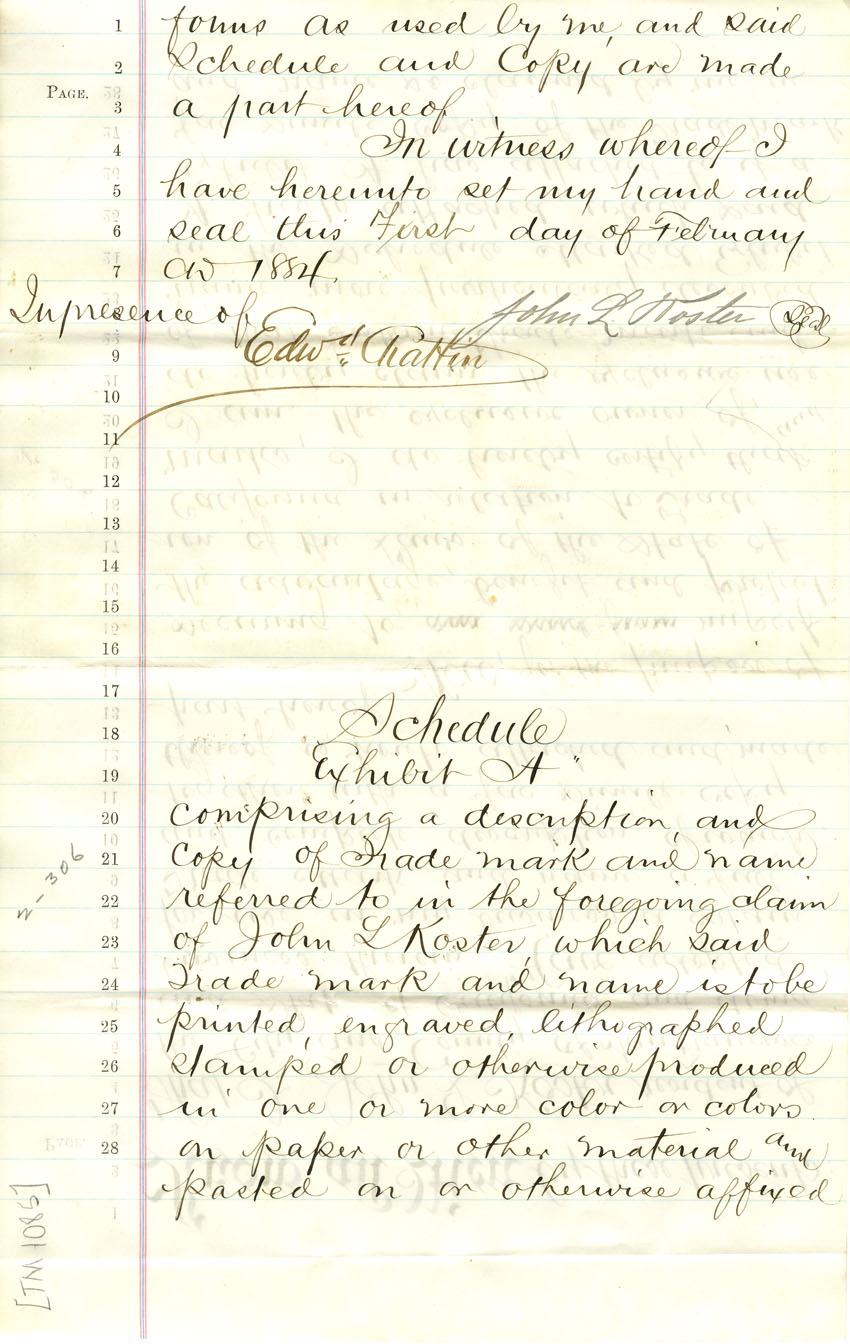 1 forms as used by me, and said
2 Schedule and Copy are made
PAGE.
3 a part hereof
4 In witness whereof I
5 have hereunto set my hand and
6 seal this First day of February
7 AD 1884.
In presence of John L Koster Seal
9 Edwd Chattin
10
11
12
13
14
15
16
17
18 Schedule
19 Exhibit A"
20 comprising a description, and
21 Copy of Trade mark and name
22 referred to in the foregoing claim
23 of John L Koster, which said
24 Trade mark and name is to be
25 printed, engraved, lithographed
26 stamped or otherwise produced
27 in one or more color or colors
28 on paper or other material and
pasted on or otherwise affixed
2-306
[TM 1085]